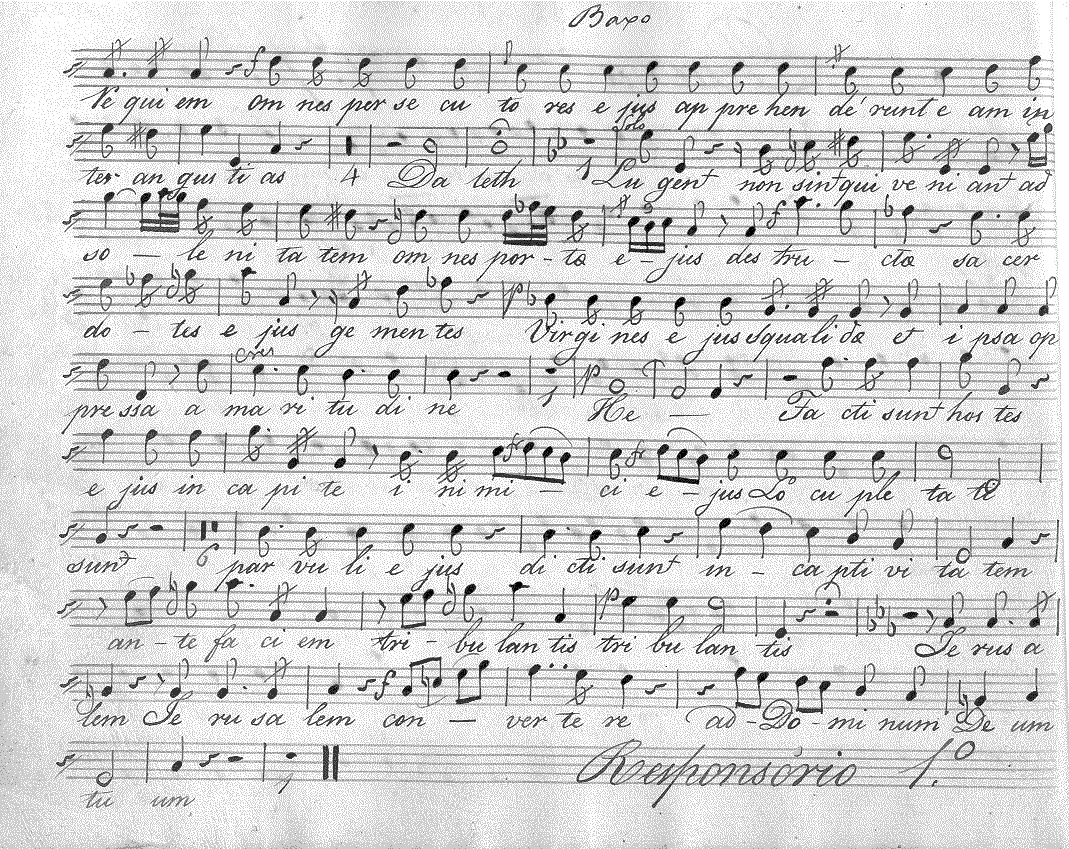 Baxo
Ve qui em om nes per se cu to res e jus ap pre hen dé runt e am in
Solo
ter an gus ti as 4 Da leth 1 Lu gent non sint qui ve ni ant ad
so - le ni ta tem om nes por - tæ e - jus des tru - ctæ sa cer
do - tes e jus ge men tes Virgi nes e jus squali dæ et i psa op
cres
pre ssa a ma ri tu di ne 1 He - Fa cti sunt hos tes
e jus in ca pi te i ni mi - ci e - jus Lo cu ple ta te
sunt 6 par vu li e jus du cti sunt in - ca pti vi ta tem
an - te fa ci em tri - bu lan tis tri bu lan tis Je rus a
lem Je ru sa lem con - ver te re ad - Do - mi num De um
tu um 1 Responsório 1.º